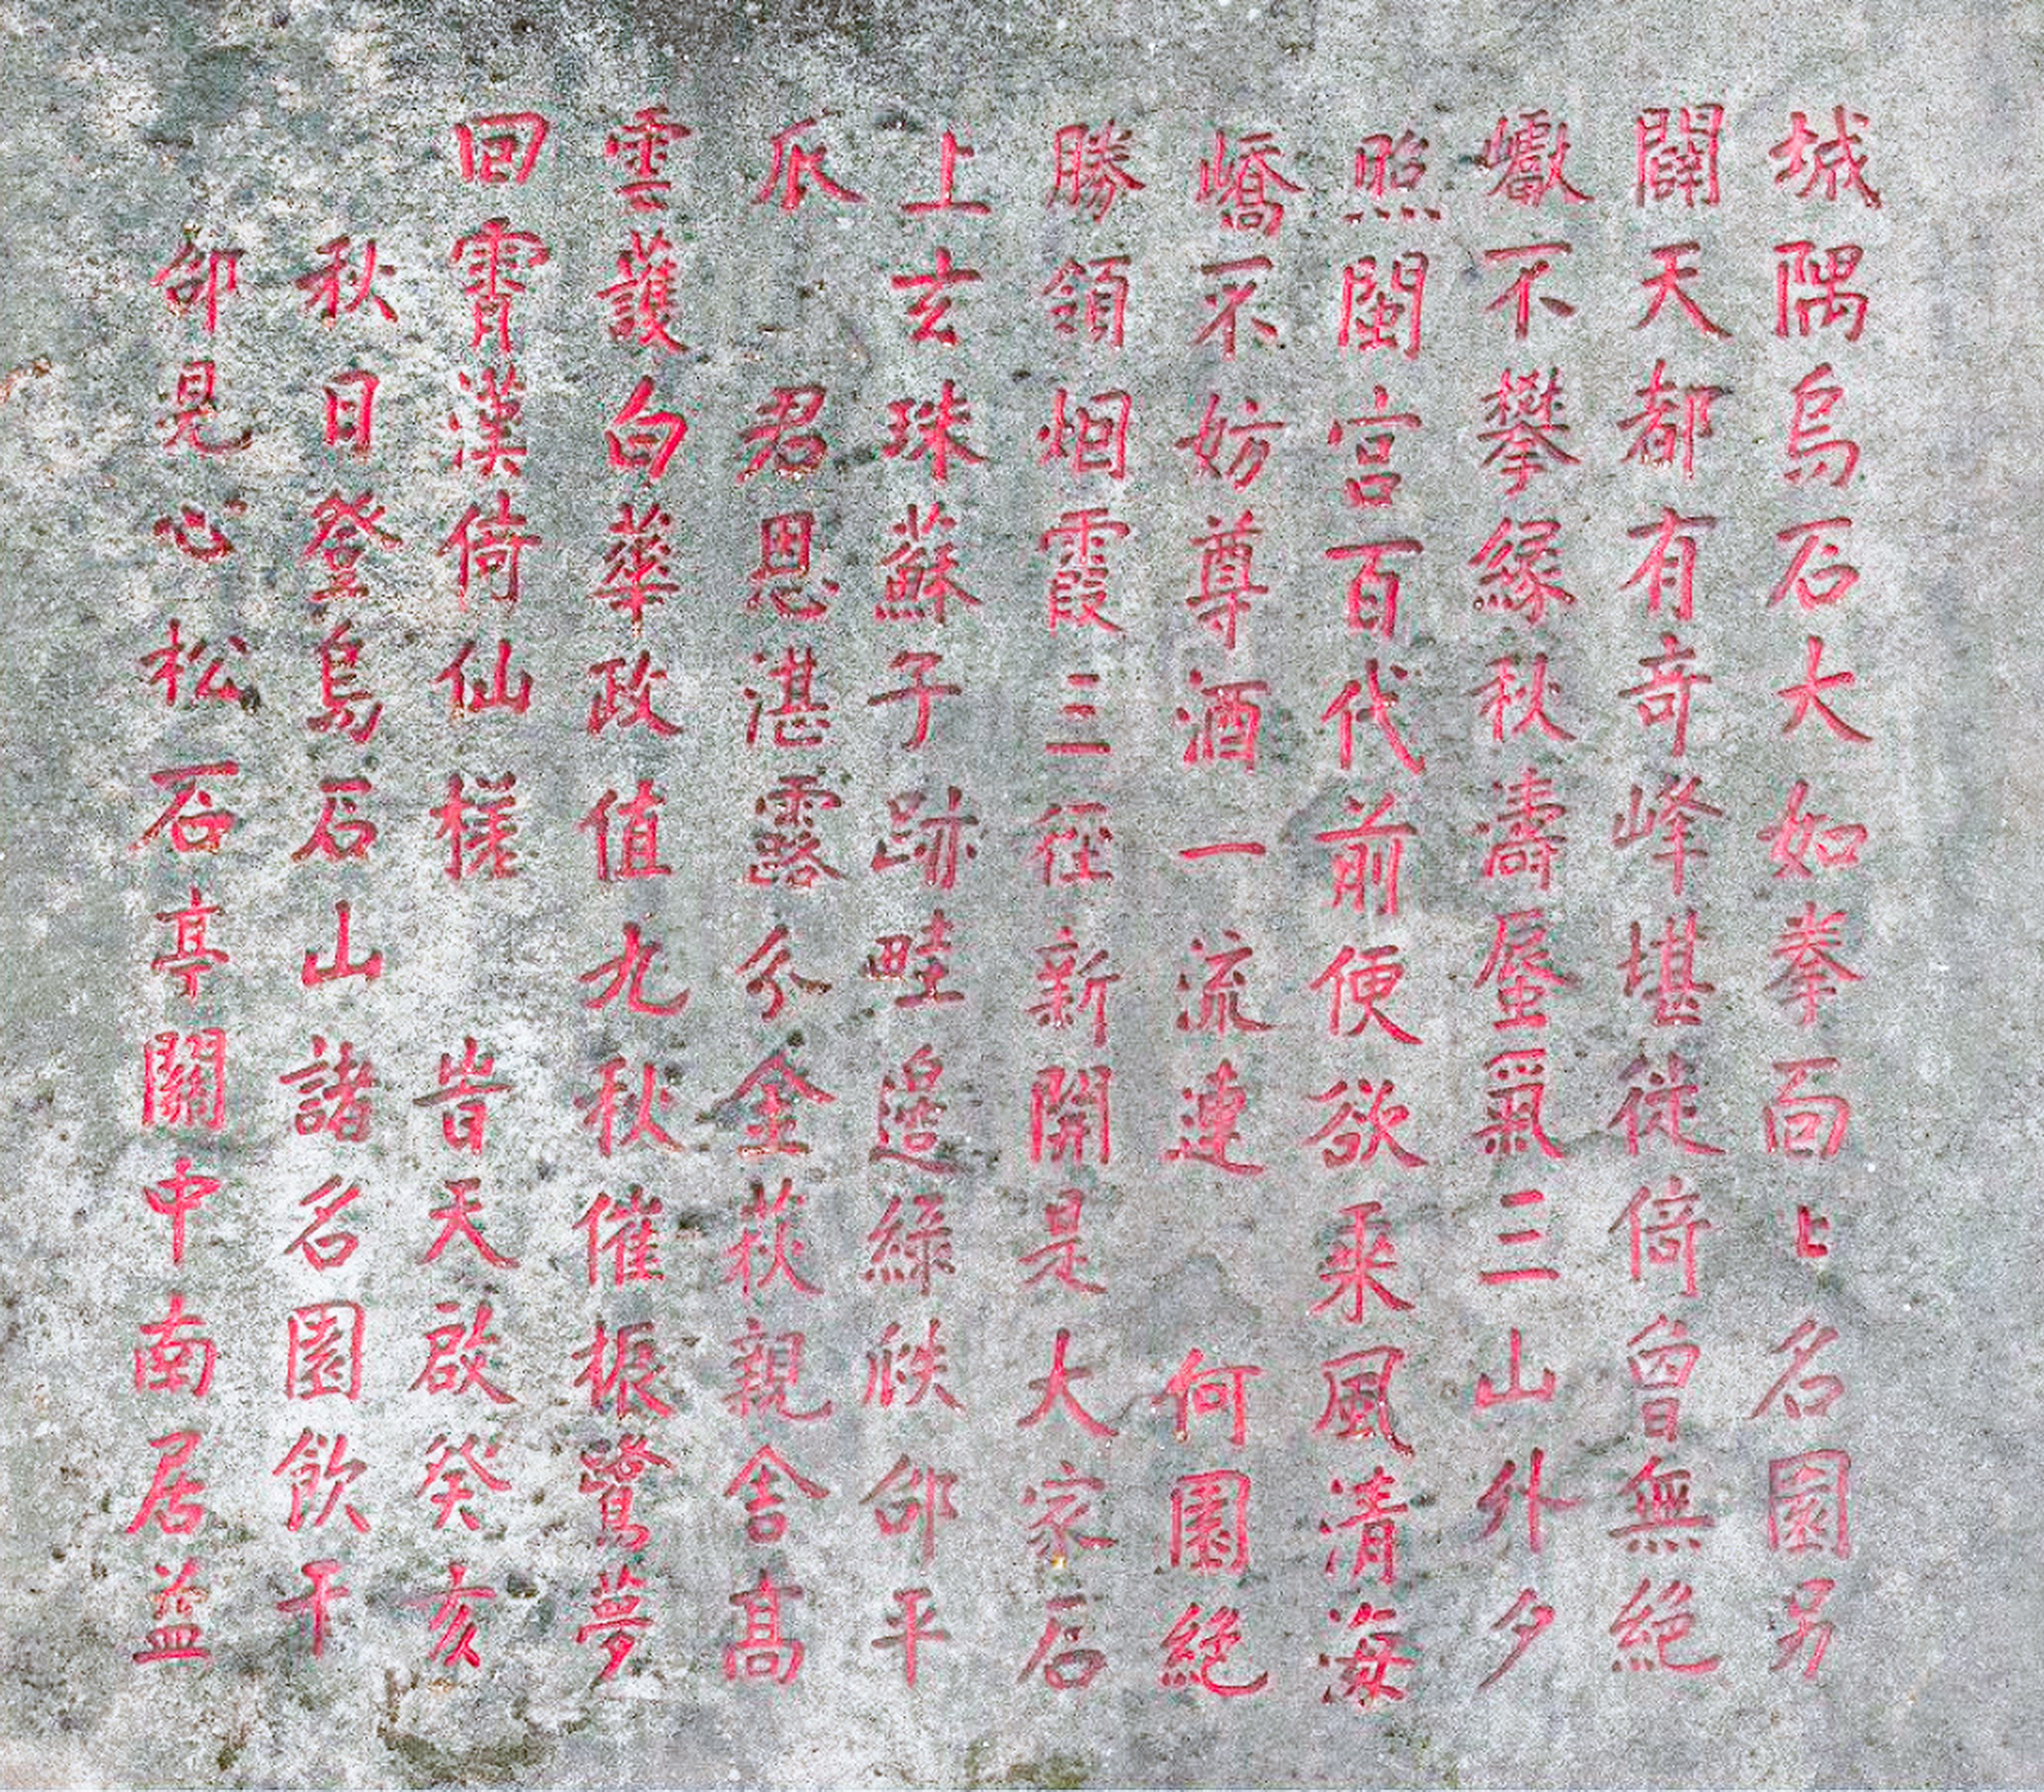 城隅烏石大如拳面々名園另
闢天都有奇峰堪徙倚曾無絕
巘不攀緣秋濤蜃氣三山外夕
照閩宮百代前便欲乘風清海
嶠不妨尊酒一流連 何園絕
勝領烟霞三徑新開是大家石
上玄珠蘇子跡畦邊綠瓞邵平
瓜 君恩湛露分金荻親舍高
雲護白華政值九秋催振鷺夢
回霄漢倚仙槎 旹天啟癸亥
秋日登烏石山諸名園飲于
邵見心松石亭關中南居益